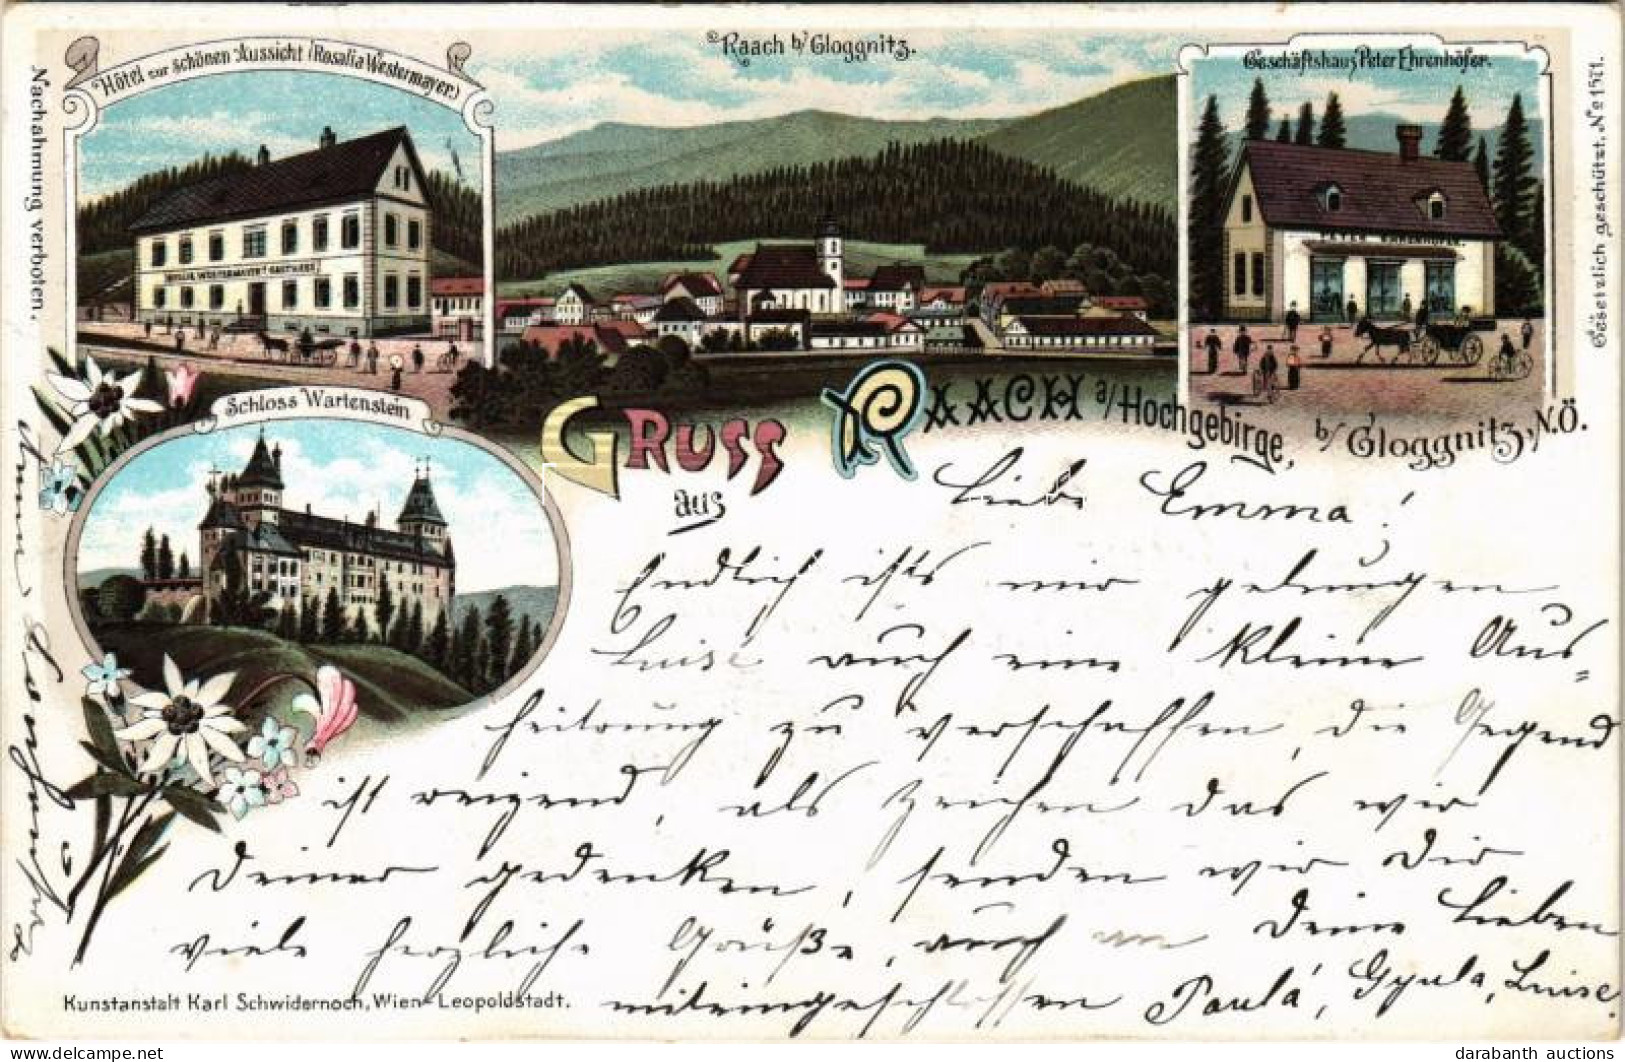 Hôtel zur schönen Aussicht (Rosalia Westermayer.)
Raach b/ Gloggnitz.
Geschäftshaus Peter Ehrenhöfer.
Nachahmung verboten.
Gesetzlich geschützt. No 1571.
PETER EHRENHÖFER.
Schloss Wartenstein
GRUSS aus RAACH a/Hochgebirge, b/ Gloggnitz, N.Ö.
Liebe Emma!
Endlich ists mir gelungen
Luise auch eine kleine Aus=
heiterung zu verschaffen, die Gegend
ist reizend, als Zeichen das wir
Deiner gedenken, senden wir Dir
viele herzliche Grüße, auch an Deine Lieben
miteingeschlossen Paula, Gyula, Luise.
Kunstanstalt Karl Schwidernoch, Wien-Leopoldstadt.
darabanth auctions